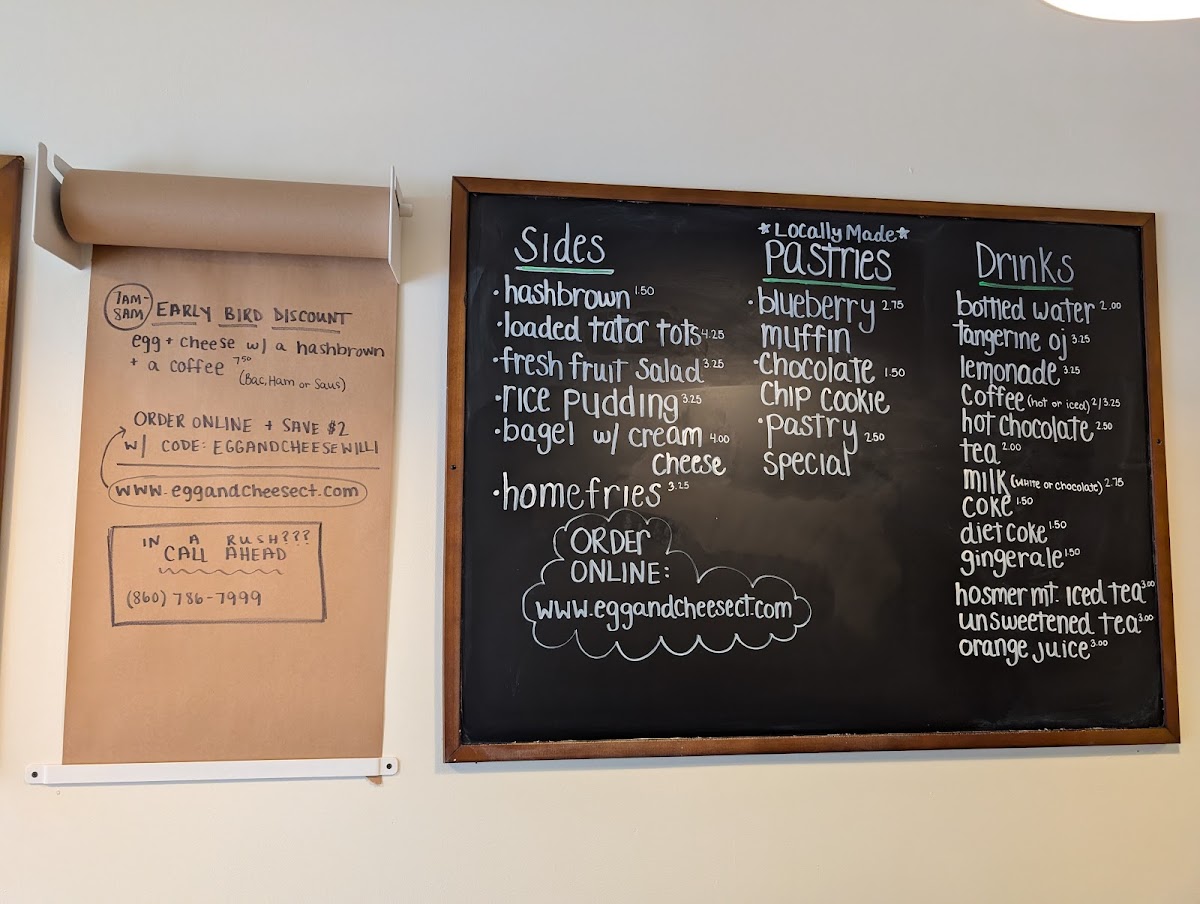 7AM-
8AM
EARLY BIRD DISCOUNT
egg + cheese w/ a hashbrown
+ a coffee 7.50
(Bac, Ham or Saus)
ORDER ONLINE + SAVE $2
W/ CODE: EGGANDCHEESEWILLI
www.eggandcheesect.com
IN A RUSH???
CALL AHEAD
(860) 786-7999
Sides
• hashbrown 1.50
• loaded tator tots 4.25
• fresh fruit salad 3.25
• rice pudding 3.25
• bagel w/ cream 4.00
cheese
• homefries 3.25
ORDER
ONLINE:
www.eggandcheesect.com
*Locally Made*
PASTRIES
• blueberry 2.75
muffin
• chocolate 1.50
chip cookie
• pastry 2.50
special
Drinks
bottled water 2.00
tangerine oj 3.25
lemonade 3.25
coffee (hot or iced) 2/3.25
hot chocolate 2.50
tea 2.00
milk (white or chocolate) 2.75
coke 1.50
diet coke 1.50
gingerale 1.50
hosmer mt. iced tea 3.00
unsweetened tea 3.00
orange juice 3.00